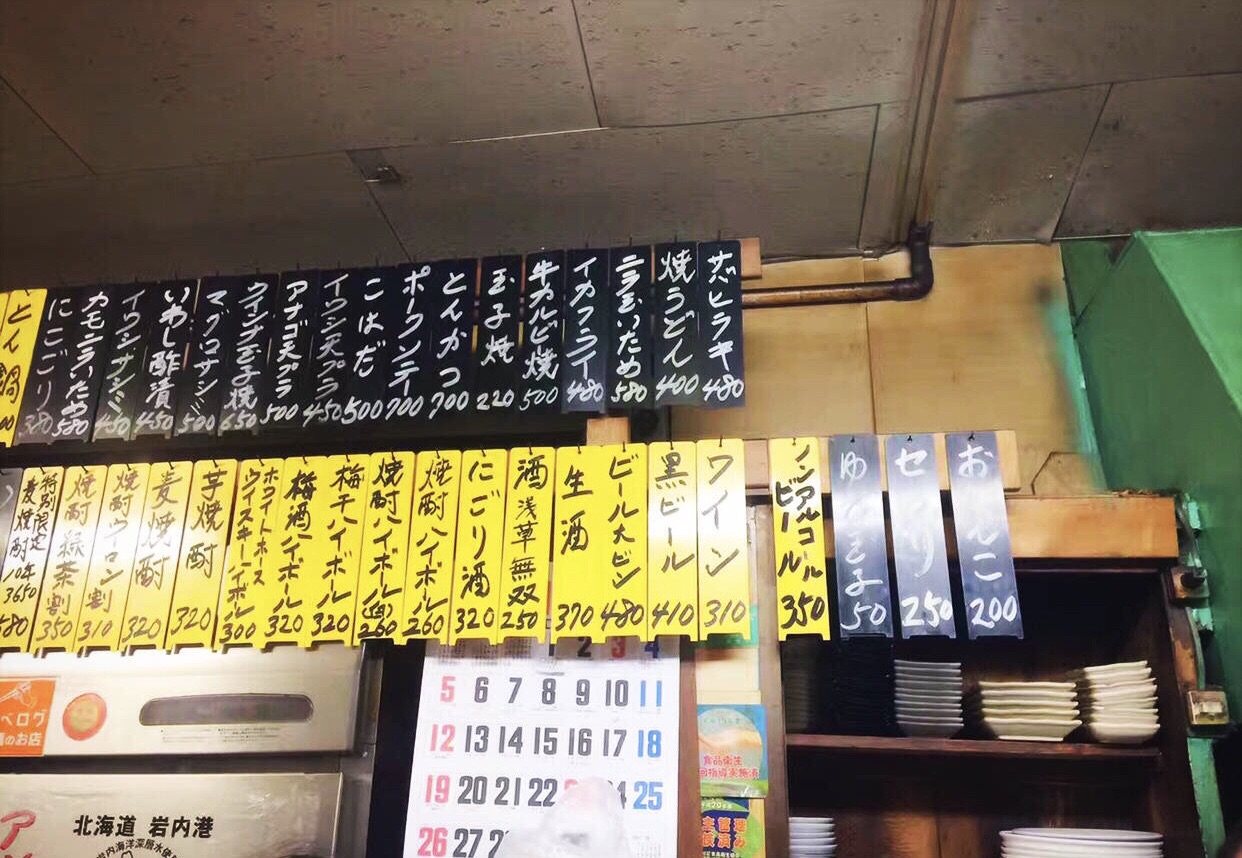 サバヒラキ 480
焼うどん 400
ニラ玉いため 580
イカフライ 480
牛カルビー焼 500
玉子焼 220
とんかつ 700
ポークソテー 700
こはだ 500
イワシ天プラ 450
アナゴ天プラ 500
ウインナ玉子焼 650
マグロサシミ 500
いわし酢漬 450
イワシサシミ 450
カモニラいため 580
にこごり 380
とん鍋
おしんこ 200
セリ 250
ゆで玉子 50
ノンアルコールビール 350
ワイン 310
黒ビール 410
ビール大ビン 480
生酒 370
酒浅草無双 250
にごり酒 320
焼酎ハイボール 260
焼酎ハイボール 260
梅干ハイボール 320
梅酒ハイボール 320
ホワイトホース
ウイスキーハイボール 300
芋焼酎 320
麦焼酎 320
焼酎ウーロン割 310
焼酎緑茶割 350
特別限定
麦焼酎10年 3650
2 3 4
5 6 7 8 9 10 11
12 13 14 15 16 17 18
19 20 21 22 25
26 27
べログ
のお店
北海道 岩内港
岩内海洋深層水使
食品衛生
指導実施済